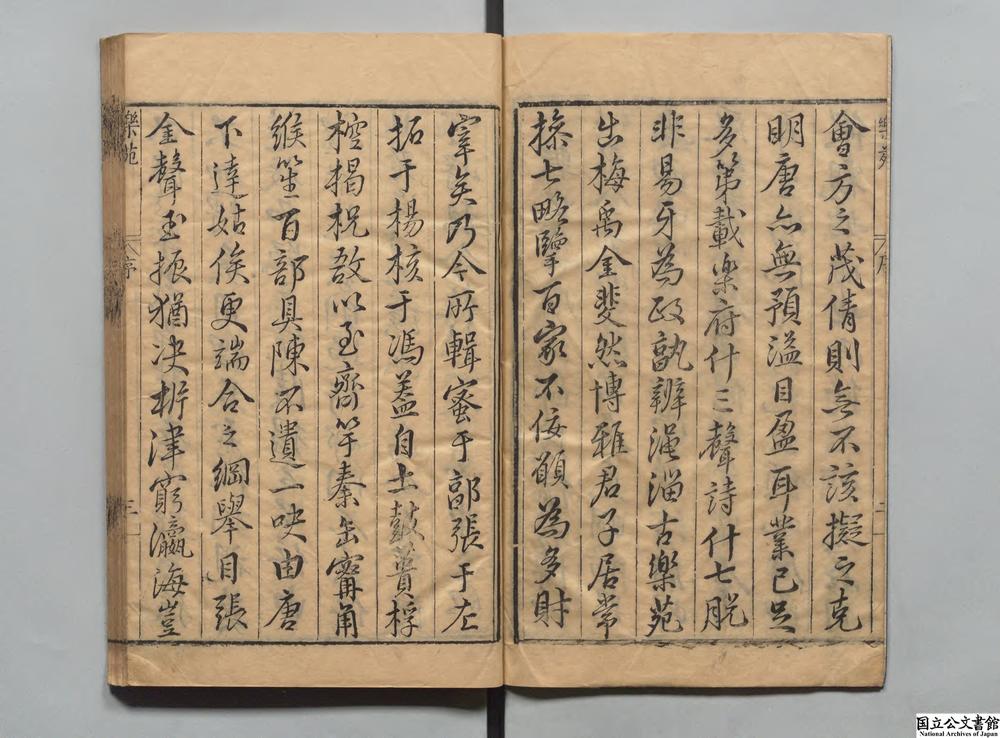 會方之茂倩則無不該擬之克
明唐亦無預溢目盈耳業已足
多第載樂府什三聲詩什七脫
非易牙為政孰辨澠淄古樂苑
出梅禹金斐然博雅君子居常
搽七略擥百家不佞願為多財
宰矣乃今所輯蜜于郭張于左
拓于楊核于馮蓋自土鼓蕢桴
椌楬柷敔以至齊竽秦缶甯角
緱笙百部具陳不遺一吷由唐
下達姑俟更端合之綱舉目張
金聲玉振猶决析津窮瀛海豈
樂苑
序
三
国立公文書館
National Archives of Japan